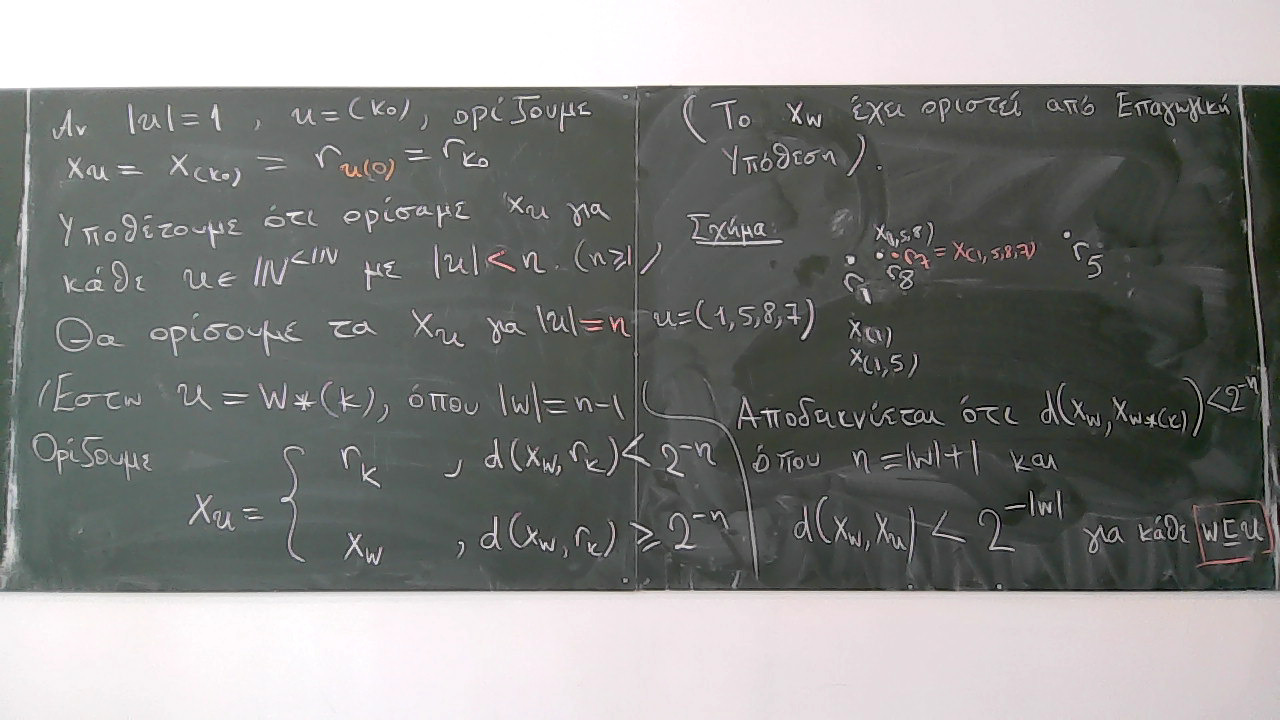 Αν |u|=1 , u=(k₀), ορίζουμε
xᵤ = x₍ₖ₀₎ = r_{u(0)} = r_{k₀}
Υποθέτουμε ότι ορίσαμε xᵤ για
κάθε u∈ℕ^{<ℕ} με |u|<n. (n≥1)
Θα ορίσουμε τα xᵤ για |u|=n
Έστω u = w*(k), όπου |w|=n-1
Ορίζουμε
xᵤ = { r_k , d(x_w, r_k) < 2^{-n}
x_w , d(x_w, r_k) ≥ 2^{-n}
(Το x_w έχει οριστεί από Επαγωγική
Υπόθεση).
Σχήμα:
x_{(1,5,8)}
r₇ = x_{(1,5,8,7)}
r₅
r₁ r₈
u=(1,5,8,7)
x_{(1)}
x_{(1,5)}
Αποδεικνύεται ότι d(x_w, x_{w*(k)}) < 2^{-n}
όπου n=|w|+1 και
d(x_w, x_u) < 2^{-|w|} για κάθε w⊑u